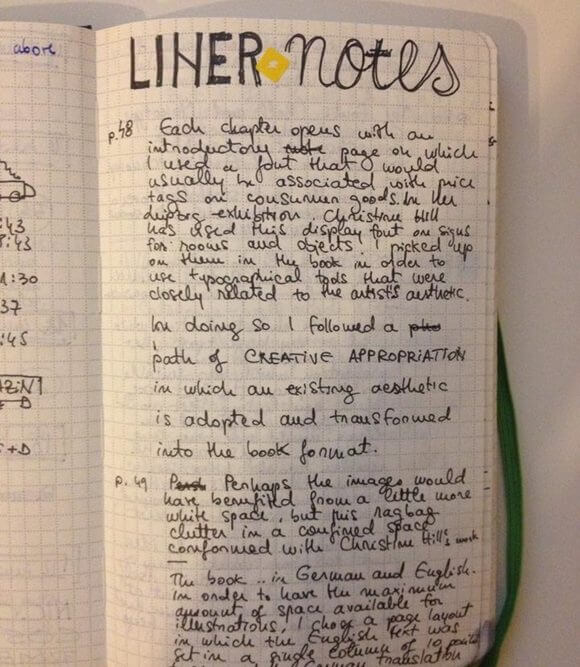 above
LINER notes
p.48 Each chapter opens with an
introductory note page on which
I used a font that would
usually be associated with price
tags on consumer goods. In her
exhibition, Christine Hill
has used this display font on signs
for rooms and objects. I picked up
on them in the book in order to
use typographical tools that were
closely related to the artist's aesthetic.
In doing so I followed a pho
path of CREATIVE APPROPRIATION
in which an existing aesthetic
is adopted and transformed
into the book format.
p. 49 Perhaps the images would
have benefited from a little more
white space, but this ragbag
clutter in a confined space
conformed with Christine Hill's work
The book .. in German and English.
In order to have the maximum
amount of space available for
illustrations, I chose a page layout
in which the English text was
set in a single column of 10 point
German translation
:43
:43
:30
37
:45
AZIN
+D
S+D